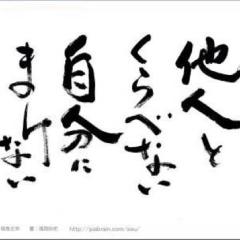 他人と
くらべない
自分に
まけない
http://yabrain.com/sou/